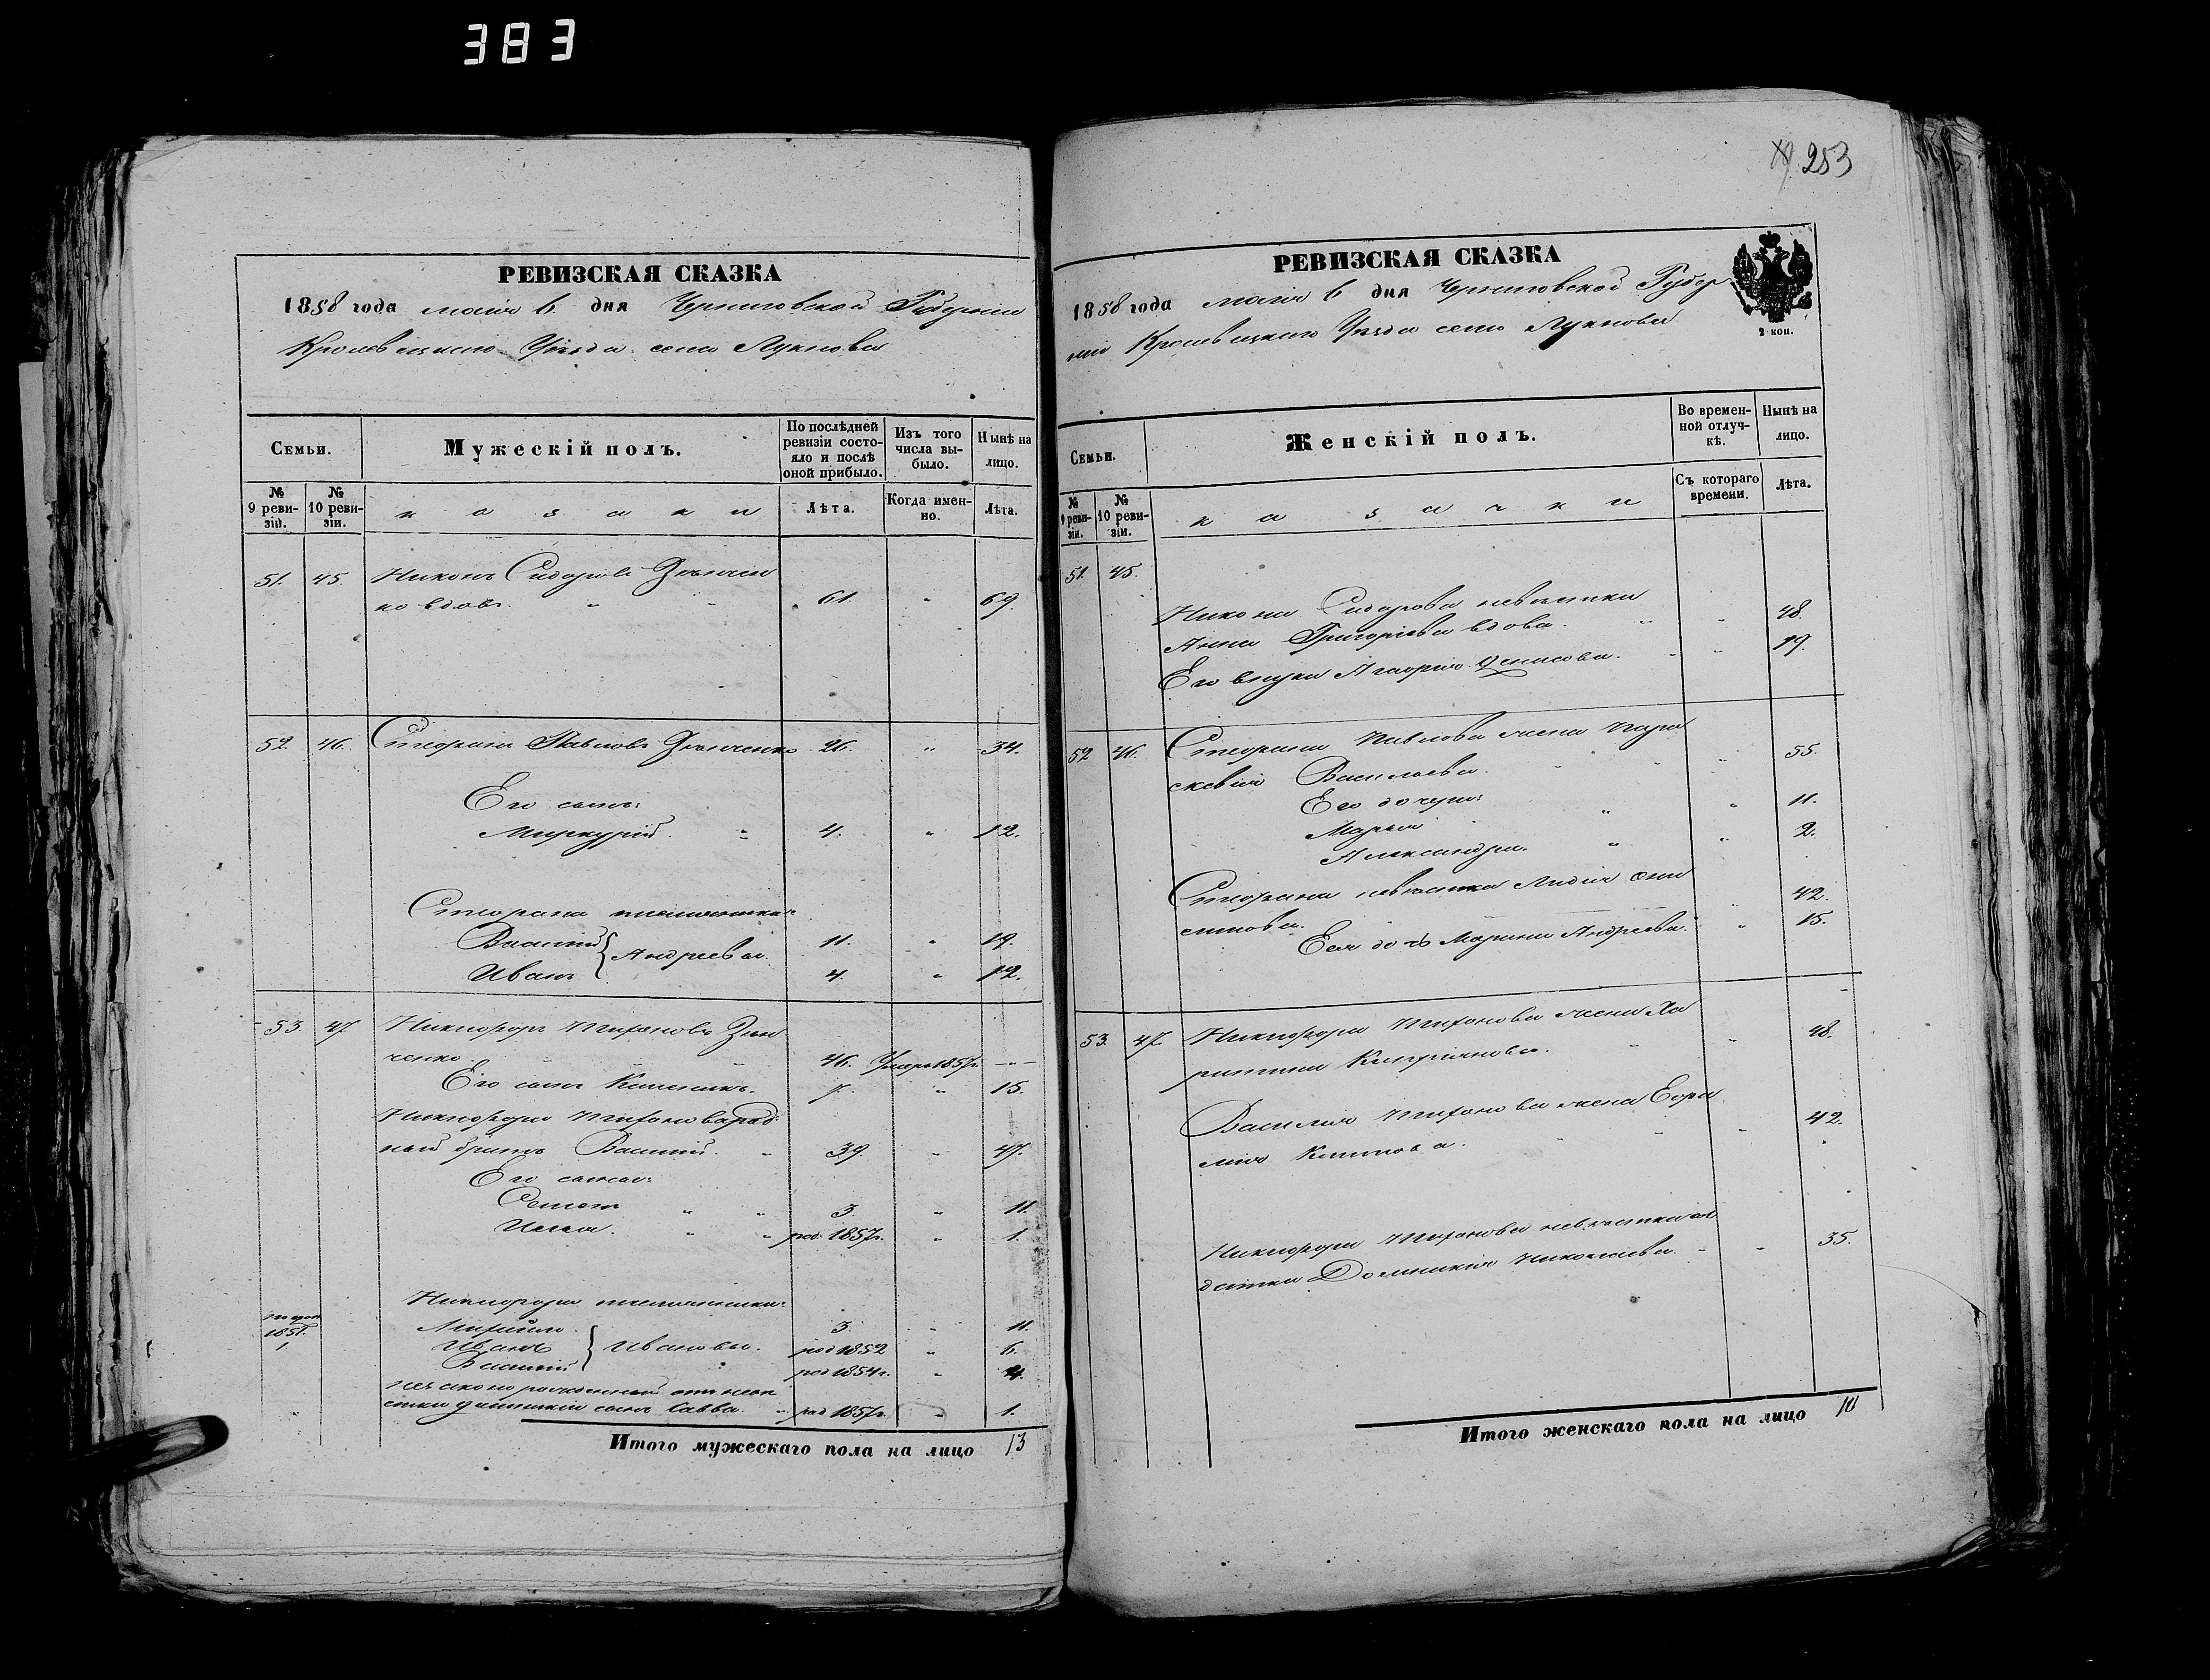 383
РЕВИЗСКАЯ СКАЗКА
1858 года мая 6 дня Черниговской Губернии
Кролевецкаго Уѣзда села Лукнова
Семьи.
Мужескій полъ.
По послѣдней ревизіи состояло и послѣ оной прибыло.
Изъ того числа выбыло.
Нынѣ на лицо.
№ 9 ревизіи.
№ 10 ревизіи.
казаки
Лѣта.
Когда именно.
Лѣта.
51. 45. Никонъ Сидоровъ Зѣнчен
ко вдовъ. " " 61. " 69.
52. 46. Стефанъ Павловъ Зѣнченко 26. " 34.
Его сынъ:
Меркурій. " 4. " 12.
Стефана племянники:
Василій 11. " 19.
Андреевы.
Иванъ 4. " 12.
53. 47. Никифоръ Тихоновъ Зѣн
ченко. " " 46. Умеръ 1857г. —
Его сынъ 7. " 15.
Никифора Тихонова род
ный братъ Василій. " 39. " 47.
Его сыны:
" " 3. " 11.
Илья. " " род. 1857г. " 1.
Никифора племянники:
1851.
1
Михаилъ. 3. " 11.
Иванъ Ивановы. род 1852 " 6.
Василій род 1854г. " 4.
незаконорожденный отъ невѣ
стки сынъ Савва. " род 1857г. " 1.
Итого мужескаго пола на лицо 13
253
РЕВИЗСКАЯ СКАЗКА
1858 года мая 6 дня Черниговской Губер
ніи Кролевецкаго Уѣзда села Лукнова
2 коп.
Семьи.
Женскій полъ.
Во временной отлучкѣ.
Нынѣ на лицо.
№ 9 ревизіи.
№ 10 ревизіи.
казачки
Съ котораго времени.
Лѣта.
51. 45.
Никона Сидорова невѣстка
Анна Григоріева вдова. " " 48.
Его внука Агафія Денисова. " " 19.
52 46. Стефана Павлова жена Пара
скевія Васильева. " " " 55.
Его дочери:
Марья " " 11.
Александра. " " 2.
Стефана невѣстка Лидія
" 42.
Ея дочь Марина Андреева. " 15.
53. 47. Никифора Тихонова жена Ха
ритина Кипріянова. " " 48.
Василія Тихонова жена Евфи
мія " " " 42.
Никифора Тихонова невѣстка сол
датка Домникія Николаева. " " 35.
Итого женскаго пола на лицо 10